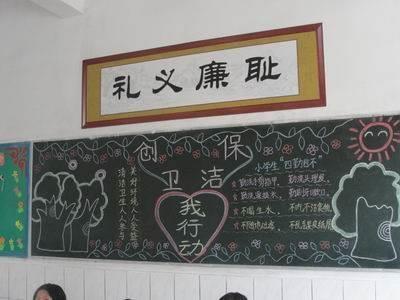 礼义廉耻
创保
卫洁
我行动
清洁卫生人人参与
美好环境人人受益
小学生“四勤四不”
勤洗手剪指甲, 勤洗头理发,
勤洗澡换衣, 勤刷牙漱口。
不喝生水, 不吃不洁食物,
不随地吐痰, 不乱丢果皮纸屑